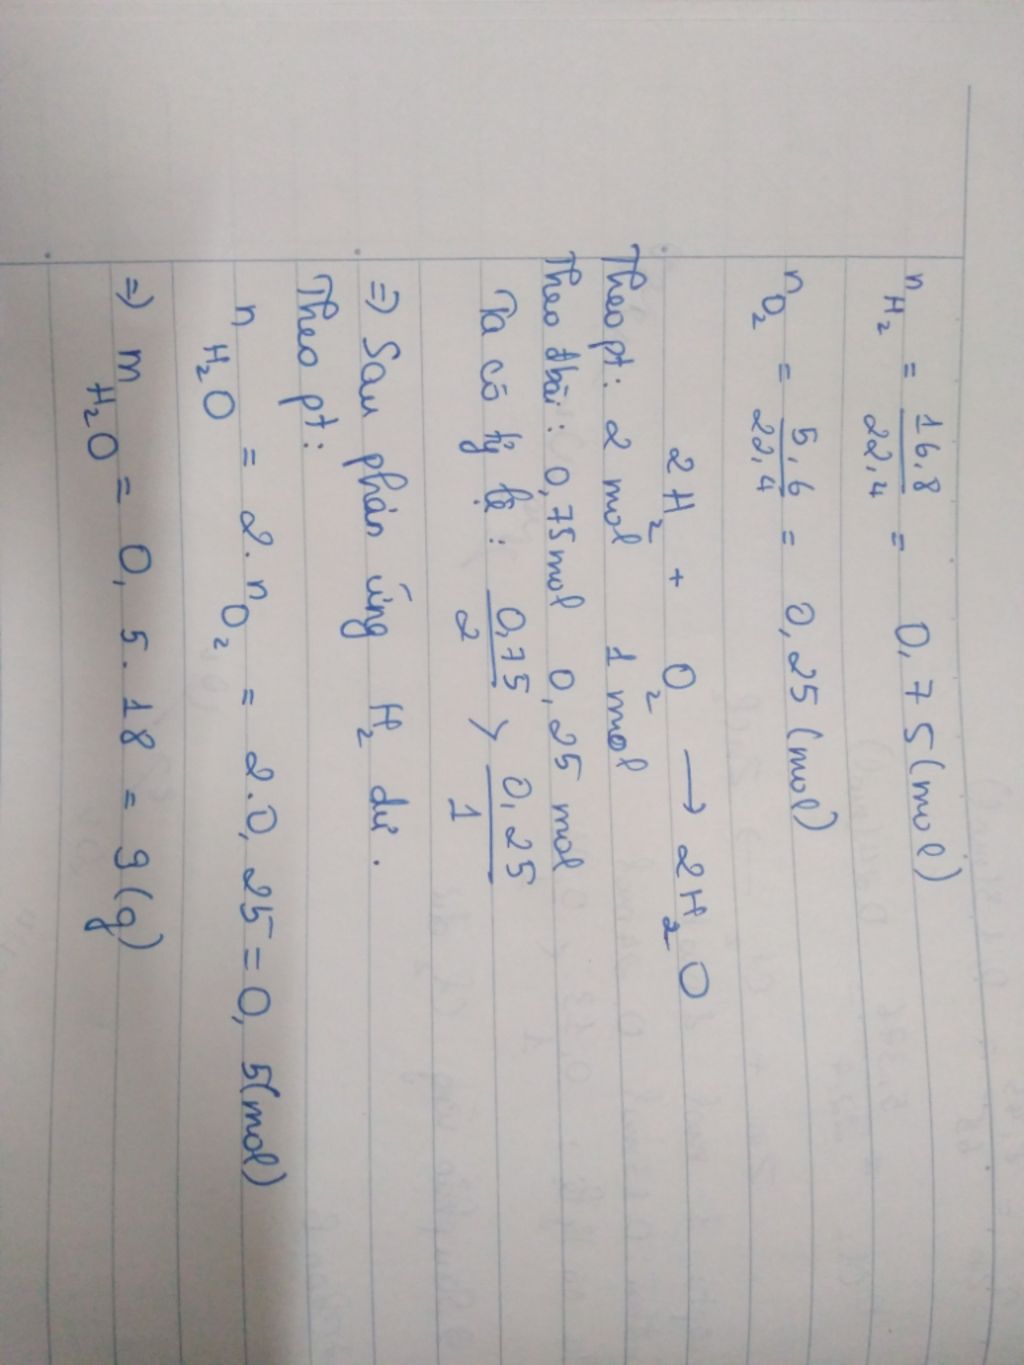 n H₂ = 16,8/22,4 = 0,75 (mol)
n O₂ = 5,6/22,4 = 0,25 (mol)
2H₂ + O₂ → 2H₂O
Theo pt: 2 mol 1 mol
Theo đbài: 0,75mol 0,25 mol
Ta có tỷ lệ: 0,75/2 > 0,25/1
=> Sau phản ứng H₂ dư.
Theo pt:
n H₂O = 2. n O₂ = 2.0,25 = 0,5(mol)
=> m H₂O = 0,5.18 = 9(g)